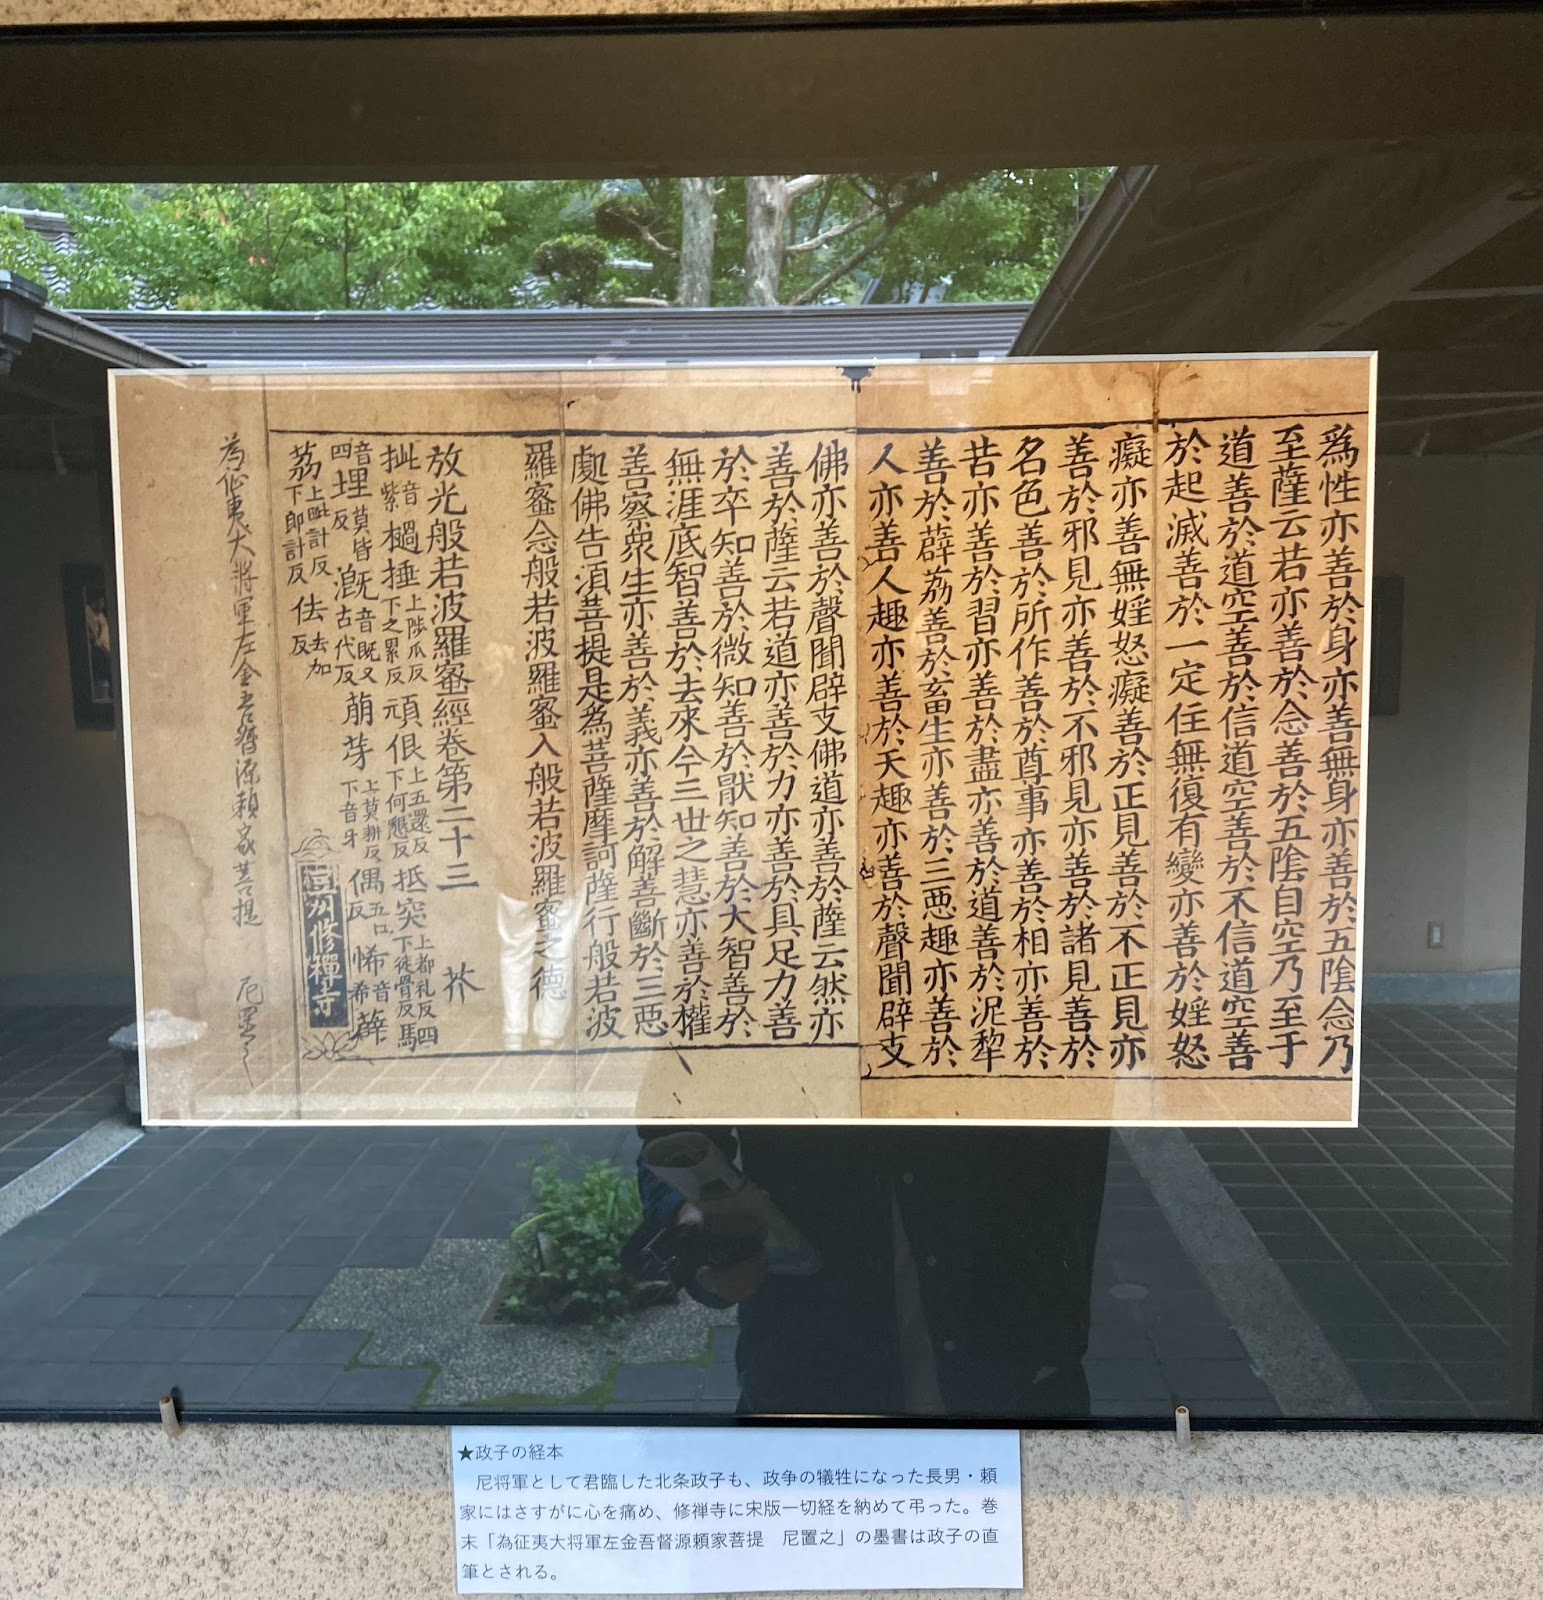 爲性亦善於身亦善無身亦善於五陰念乃
至薩云若亦善於念善於五陰自空乃至于
道善於道空善於信道空善於不信道空善
於起滅善於一定住無復有變亦善於婬怒
癡亦善無婬怒癡善於正見善於不正見亦
善於邪見亦善於不邪見亦善於諸見善於
名色善於所作善於尊事亦善於相亦善於
苦亦善於習亦善於盡亦善於道善於泥犂
善於薜荔善於畜生亦善於三惡趣亦善於
人亦善人趣亦善於天趣亦善於聲聞辟支
佛亦善於聲聞辟支佛道亦善於薩云然亦
善於薩云若道亦善於力亦善於具足力善
於卒知善於微知善於猒知善於大智善於
無涯底智善於去來今三世之慧亦善於權
善察衆生亦善於義亦善於解善斷於三惡
處佛告須菩提是為菩薩摩訶薩行般若波
羅蜜念般若波羅蜜入般若波羅蜜之德
放光般若波羅蜜經卷第二十三 芥
扯音紫檛捶上陟瓜反下之累反頑佷上五還反下何懇反抵突上都礼反下徒骨反駟
音四埋莫皆反漑音既又古代反萠芽上莫耕反下音牙偶五口反悕音希薜
荔上毗計反下郎計反佉去加反
豆州修禪寺
為征夷大將軍左金吾督源頼家菩提 尼置之
★政子の経本
尼将軍として君臨した北条政子も、政争の犠牲になった長男・頼
家にはさすがに心を痛め、修禅寺に宋版一切経を納めて弔った。巻
末「為征夷大将軍左金吾督源頼家菩提　尼置之」の墨書は政子の直
筆とされる。